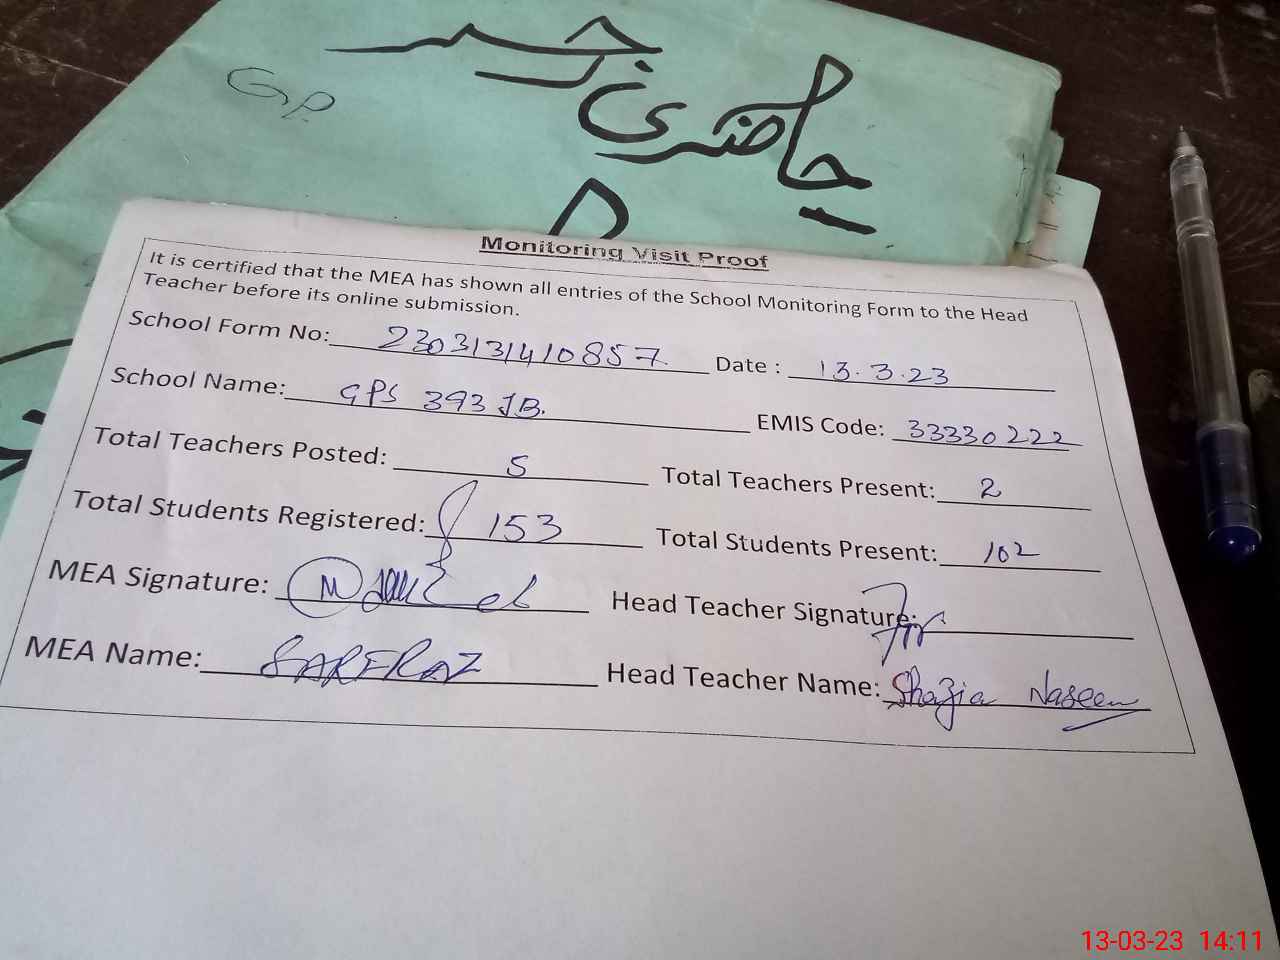 رجسٹر
حاضری
GP
Monitoring Visit Proof
It is certified that the MEA has shown all entries of the School Monitoring Form to the Head
Teacher before its online submission.
School Form No: 230313140857 Date : 13.3.23
School Name: GPS 393 JB. EMIS Code: 33330222
Total Teachers Posted: 5 Total Teachers Present: 2
Total Students Registered: 153 Total Students Present: 102
MEA Signature: Head Teacher Signature:
MEA Name: SARFRAZ Head Teacher Name: Shazia Naseem
13-03-23 14:11